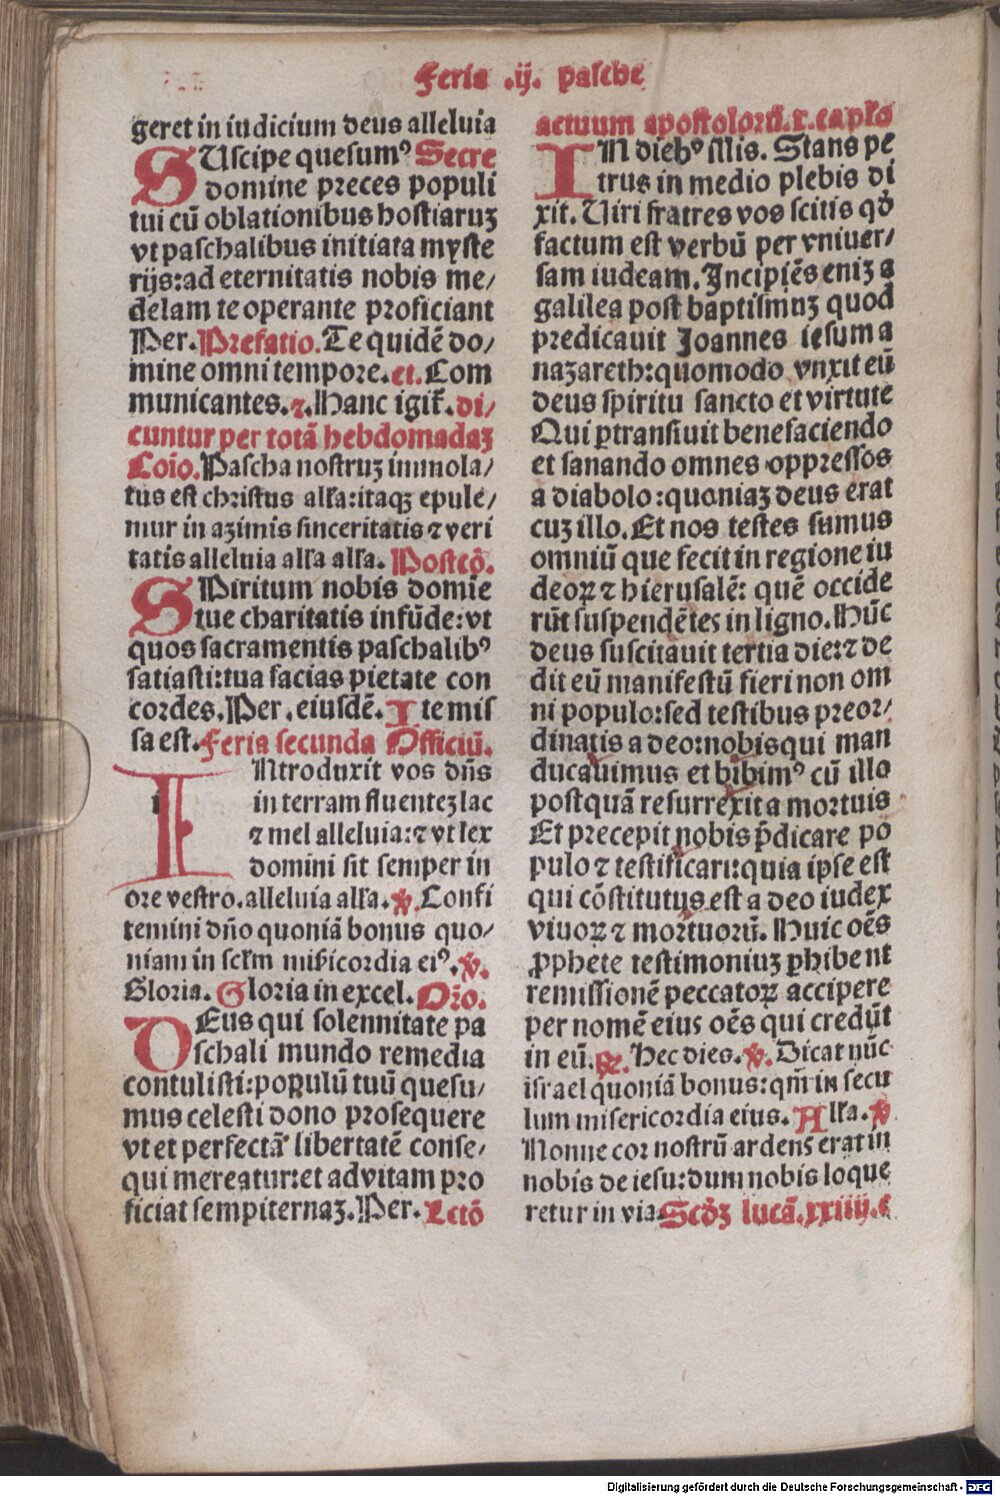 Feria .ij. pasche
geret in iudicium deus alleluia
SUscipe quesumꝰ Secre
domine preces populi
tui cū oblationibus hostiaruꝫ
vt paschalibus initiata myste
rijs:ad eternitatis nobis me/
delam te operante proficiant
Per. Prefatio. Te quidē do/
mine omni tempore. et. Com
municantes. ⁊. Hanc igit̄. di/
cuntur per totā hebdomadaꝫ
Coīo. Pascha nostruꝫ immola/
tus est christus alľa:itaqꝫ epule/
mur in azimis sinceritatis ⁊ veri
tatis alleluia alľa alľa. Postcō.
SPiritum nobis domīe
tue charitatis infūde:vt
quos sacramentis paschalibꝰ
satiasti:tua facias pietate con
cordes. Per. eiusdē. Ite mis
sa est. Feria secunda Officiū.
INtroduxit vos dn̄s
in terram fluenteꝫ lac
⁊ mel alleluia:⁊ vt lex
domini sit semper in
ore vestro. alleluia alľa. ℣. Confi
temini dn̄o quoniā bonus quo/
niam in scľm mißicordia eiꝰ. ℣.
Gloria. Gloria in excel. Or̄o.
DEus qui solennitate pa
schali mundo remedia
contulisti:populū tuū quesu/
mus celesti dono prosequere
vt et perfectā libertatē conse/
qui mereatur:et ad vitam pro
ficiat sempiternaꝫ. Per. Lctō
actuum apostoloꝝ̄.x.capľo
IN diebꝰ illis. Stans pe
trus in medio plebis di
xit. Uiri fratres vos scitis qd̓
factum est verbū per vniuer/
sam iudeam. Incipiēs eniꝫ a
galilea post baptismuꝫ quod
predicauit Joannes iesum a
nazareth:quomodo vnxit eū
deus spiritu sancto et virtute
Qui ꝑtransiuit benefaciendo
et sanando omnes oppressos
a diabolo:quoniaꝫ deus erat
cuꝫ illo. Et nos testes sumus
omniū que fecit in regione iu
deoꝝ ⁊ hierusalē: quē occide
rūt suspendētes in ligno. Hūc
deus suscitauit tertia die:⁊ de
dit eū manifestū fieri non om
ni populo:sed testibus preor/
dinatis a deo:nobis qui man
ducauimus et bibimꝰ cū illo
postquā resurrexit a mortuis
Et precepit nobis p̄dicare po
pulo ⁊ testificari:quia ipse est
qui cōstitutus est a deo iudex
viuoꝝ ⁊ mortuorū. Huic oēs
ꝓphete testimoniuꝫ ꝑhibent
remissionē peccatoꝝ accipere
per nomē eius oēs qui credūt
in eū. ℞. Hec dies. ℣. Dicat nūc
israel quoniā bonus:qm̄ in secu
lum misericordia eius. Alľa. ℣
Nonne cor nostrū ardens erat in
nobis de iesu:dum nobis loque
retur in via. Scd̓ꝫ lucā.xxiiij.c
Digitalisierung gefördert durch die Deutsche Forschungsgemeinschaft - DFG